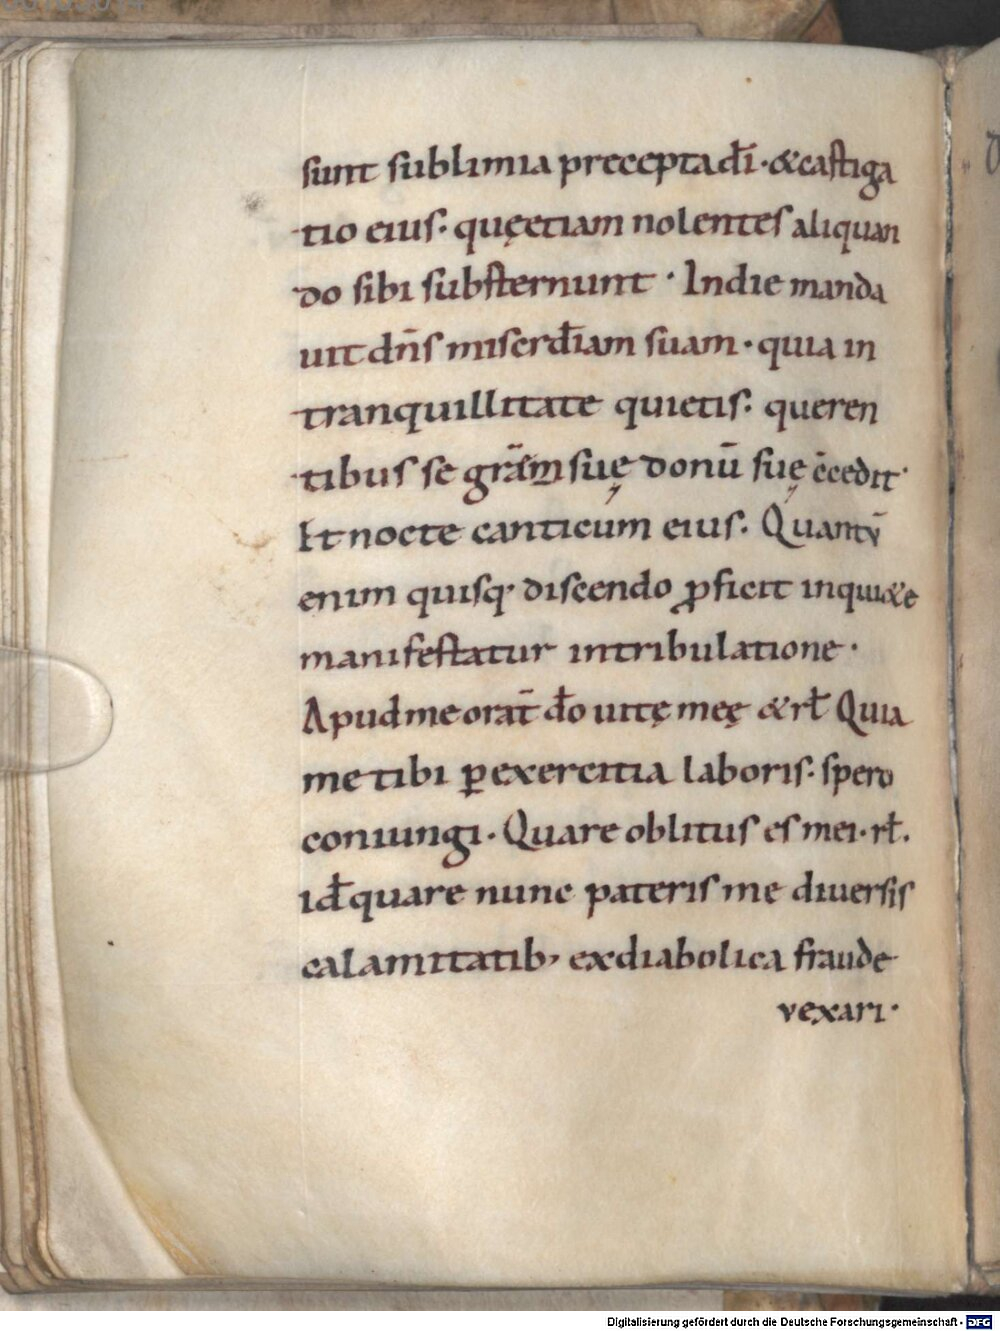 sunt sublimia precepta dī· &castiga
tio eius· quę etiam nolentes aliquan
do sibi substernunt · In die manda
uit dn̄s miserdīam suam· quia in
tranquillitate quietis· queren
tibus se grām suę donū suę c̄cedit·
Et nocte canticum eius· Quantū
enim quisq· discendo ꝓficit in qui&e
manifestatur in tribulatione·
Apud me orat̄ do uitę meę &rł Quia
me tibi ꝑ exercitia laboris· spero
coniungi· Quare oblitus es mei· rł.
id̄ quare nunc pateris me diuersis
calamitatib, ex diabolica fraude
vexari·
Digitalisierung gefördert durch die Deutsche Forschungsgemeinschaft - DFG